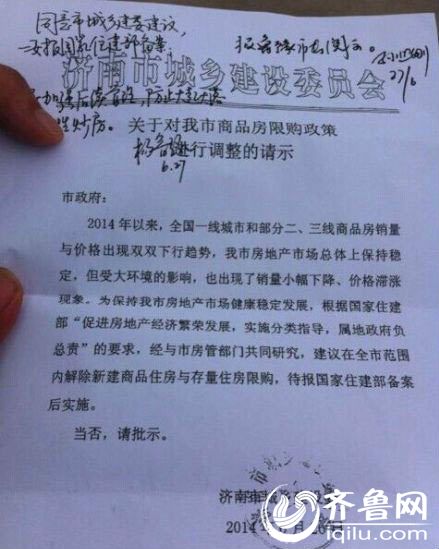 同意市城乡建委建议，
济南市城乡建设委员会
关于对我市商品房限购政策
行调整的请示
6.27
市政府：
2014年以来，全国一线城市和部分二、三线商品房销量
与价格出现双双下行趋势，我市房地产市场总体上保持稳
定，但受大环境的影响，也出现了销量小幅下降、价格滞涨
现象。为保持我市房地产市场健康稳定发展，根据国家住建
部“促进房地产经济繁荣发展，实施分类指导，属地政府负
总责”的要求，经与市房管部门共同研究，建议在全市范围
内解除新建商品住房与存量住房限购，待报国家住建部备案
后实施。
当否，请批示。
济南市
2014年
齐鲁网
iqilu.com